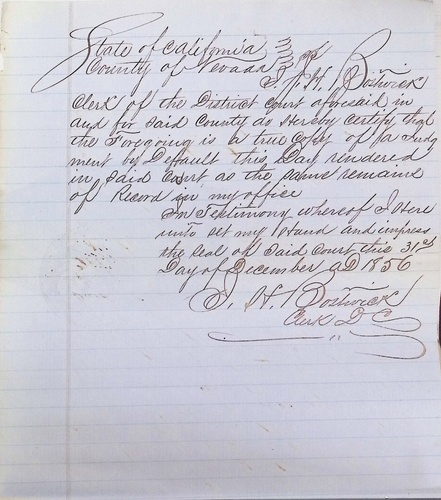 State of California
County of Nevada } SS
I. J. H. Bostwick
Clerk of the District Court aforesaid in
and for said County do Hereby Certify that
the Foregoing is a true Copy of a Judg
ment by Deffault this Day rendered
in said Court as the same remains
of Record in my office
In Testimony whereof I Here
unto set my Hand and impress
the Seal of Said Court this 31st
Day of December AD 1856
J. H. Bostwick
Clerk D C